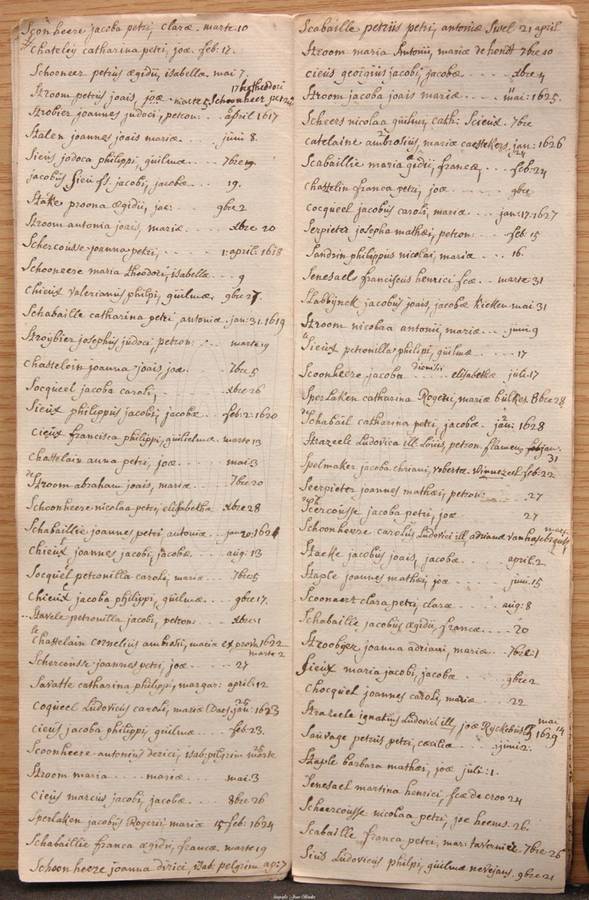 Schonheere jacoba petri, claræ. marte 10
Chateleÿ catharina petri, joæ. feb. 17.
Schoener petrus ægidii, isabella. mai 7.
Stroom petrus joais, joæ - marte 5 Schoonheer petrus 17 theodori
Strobier joannes judoci, petron: . . april 1617
Stalen joannes joais mariæ. . . . junii 8.
Sieus jodoca philippi, guilmæ. . . . 7bre 19.
jacobus Sieu fs. jacobi, jacobæ . . . 19.
Stake proona ægidii, jac: . . . 9bre 2
Stroom antonia joais, mariæ . . . xbre 20
Schercousse joanna petri, . . . 1: april: 1618
Schooneere maria theodori, isabellæ . . . 9
Chieux valerianus philpi, guilmæ, 9bre 27.
Schabaille catharina petri, antoniæ. jan: 31. 1619
Stroÿbier josephus judoci, petron: . . marte 19
Chasteloin joanna joais, joæ. . . . 7bre 5
Socqueel jacoba caroli, . . . xbre 26
Sieux philippus jacobi, jacobæ . . feb: 2: 1620
Cieux francisca philippi, guilielmæ. . marte 13
Chastelain anna petri, joæ . . . mai 3
de Stroom abraham joais, mariæ. . . 7bre 20
Schoonheere nicolaa petri, elisabetha xbre 28
Schabaillie joannes petri, antoniæ . . jan 20. 1621
Chieux joannes jacobi, jacobæ. . . . aug: 13
Socquel petronilla caroli, mariæ . . 7bre 5
Chieux jacoba philippi, guilmæ. . . 9bre 17.
Stavele petronilla jacobi, petron: . . xbre 1
le Chastelain cornelius ambrosii, maria ex provin 1622
marte 2
Schercousse joannes petri, joæ . . . 27
Savatte catharina philippi, margar: april: 12
Coqueel Ludovicus caroli, mariæ Daes, jan: 26 1623
Cieus jacoba philippi, guilmæ . . . feb: 23.
Scoonheere antonius dirici, isab: pelgrim 26 marte
Stroom maria . . . . mariæ . . . mai: 3
Cieus marcus jacobi, jacobæ. . . . 8bre 26
Sperlaken jacobus Rogerii mariæ 15 feb: 1624
Schabaillie franca ægidii, francæ. marte 19
Schoonheere joanna dirici, isab: pelgrim apr: 7
Scabaille petrus petri, antoniæ Swel 21 april
Stroom maria Antonii, mariæ de hondt 7bre 10
Cieus georgius jacobi, jacobæ . . . xbre 4
Stroom jacoba joais mariæ . . . . mai: 1625.
Scheers nicolaa guilmi, cath: Scieux. 7bre
Catelaine ambrosius, mariæ caestekers, jan: 1626
Scabaille maria ægidii, francæ, . . feb: 24
Chastelin franca petri, joæ . . . . 9bre
Cocqueel jacobus caroli, mariæ . . . jan: 17. 1627
Serpieter josepha mathæi, petron: . . feb. 15
Sandrin philippus nicolai, mariæ . . . 16.
Senesael franciscus henrici fcæ. . marte 31
Stabbijnck jacobus joais, jacobæ Kieken mai 31
Stroom nicolaa antonii, mariæ. . . . junii 9
Sieux petronilla philipi, guilmæ . . . . 17
Scoonheere jacoba dionisi elisabethæ julii 17
Sperlaken catharina Rogeri, mariæ bulkes 8bre 28
Schabail catharina petri, jacobæ. jan: 1628
Strazeele Ludovica ill: Louis, petron. flameng
31
Spelmaker jacoba chriani, robertæ. Winnezeel feb: 22
Seerpieter joannes mathæi, petron: . . . 27
Scercousse jacoba petri, joæ . . . . 27
Schoonheere carolus Ludovici ill, adrianæ
Staeke jacobus joais, jacobæ . . . . april 2.
Staple joannes mathæi, joæ . . . . . junii 15
Scoonaert clara petri, claræ . . . . aug: 8
Schabaille jacobus ægidii, francæ . . . 20
Stroobger joanna adriani, mariæ . . 7bre 1
Sieux maria jacobi, jacobæ . . . . 9bre 2
Chocqueel joannes caroli, mariæ . . 22
Strazeele ignatius Ludovici ill, joæ Ryckebus mai 14 1629
Sauvage petrus petri, cæcilia . . . junii 2.
Staple barbara mathæi, joæ julii: 1.
Senesael martina henrici, fcæ de croo 24
Scheercousse nicolaa petri, joæ heems. 26.
Scabaille franca petri, mari: tavernier 7bre 26
Sius Ludovicus philpi, guilmæ nevejans. 9bre 21